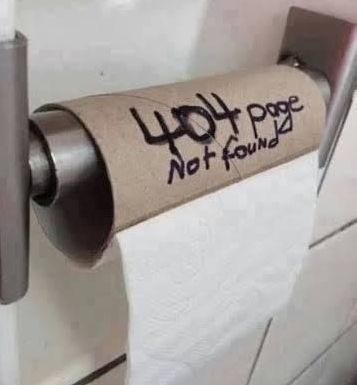 404 page
Not found